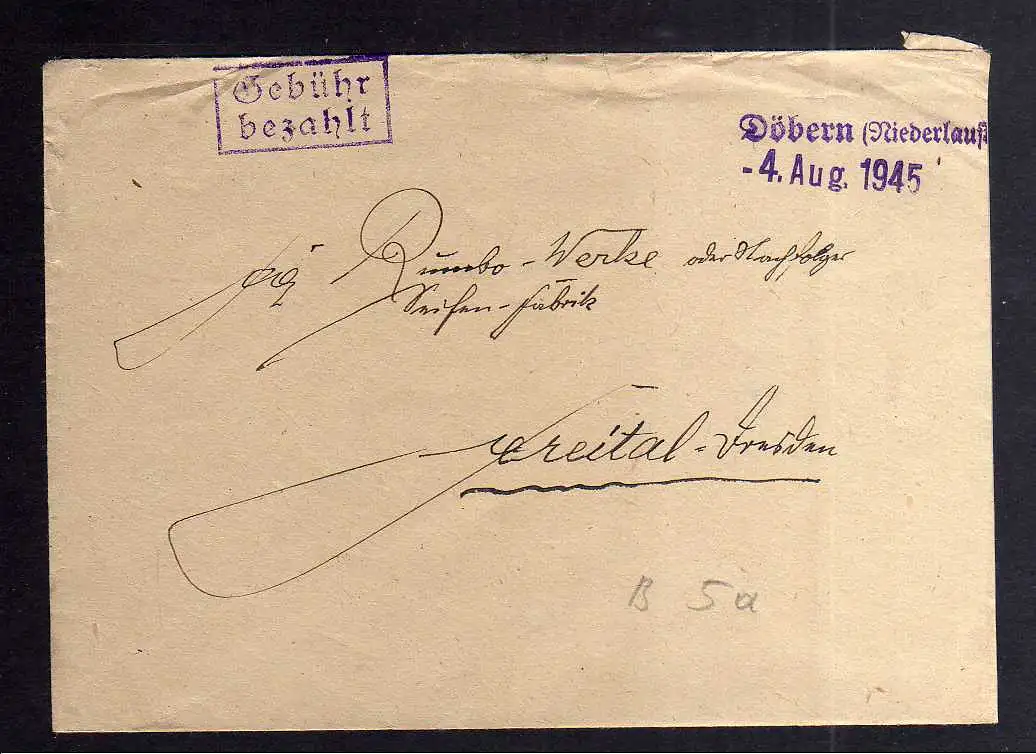 Gebühr
bezahlt
Döbern (Niederlaus
- 4. Aug. 1945
Rumbo - Werke oder Nachfolger
Seifen - Fabrik
Freital - Dresden
B 5a